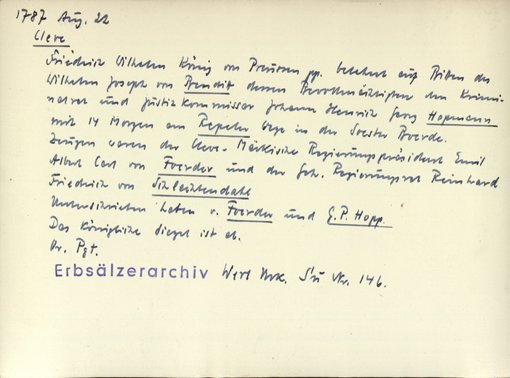 1787 Aug. 22
Cleve
Friedrich Wilhelm König von Preussen pp. belehnt auf Bitten des
Wilhelm Joseph von Bendit dessen Bevollmächtigten den Krimi-
nalrat und Justizkommissar Johann Heinrich Georg Hopmann
mit 14 Morgen am Repeler Wege in der Soester Boerde.
Zeugen waren der Cleve-Märkische Regierungspräsident Emil
Albert Carl von Foerder und der Geh. Regierungsrat Reinhard
Friedrich von Schlechtendahl
Unterschrieben haben v. Foerder und G.P. Hopp.
Das Königliche Siegel ist ab.
Or. Pgt.
Erbsälzerarchiv Werl Urk. Nr. 146.